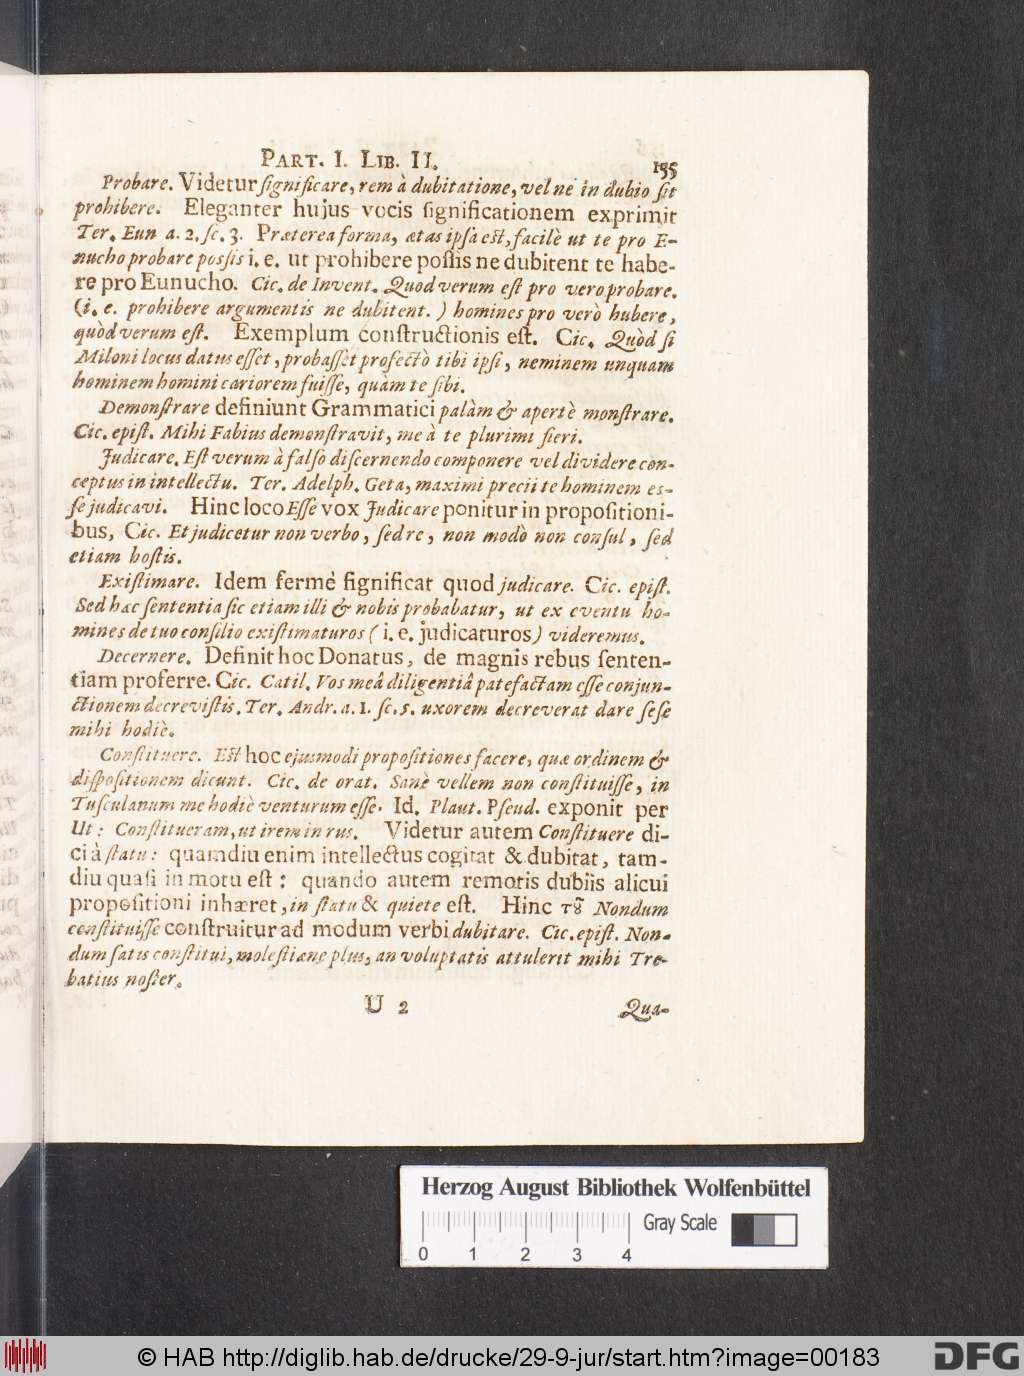 PART. I. LIB. II. 155
Probare. Videtur significare, rem à dubitatione, vel ne in dubio sit
prohibere. Eleganter hujus vocis significationem exprimit
Ter. Eun a. 2. sc. 3. Præterea forma, ætas ipsa est, facilè ut te pro E-
nucho probare possis i. e. ut prohibere possis ne dubitent te habe-
re pro Eunucho. Cic. de Invent. Quod verum est pro vero probare.
(i. e. prohibere argumentis ne dubitent.) homines pro verò hubere,
quòd verum est. Exemplum constructionis est. Cic. Quòd si
Miloni locus datus esset, probasset profectò tibi ipsi, neminem unquam
hominem homini cariorem fuisse, quàm te sibi.
Demonstrare definiunt Grammatici palàm & apertè monstrare.
Cic. epist. Mihi Fabius demonstravit, me à te plurimi fieri.
Judicare. Est verum à falso discernendo componere vel dividere con-
ceptus in intellectu. Ter. Adelph. Geta, maximi precii te hominem es-
se judicavi. Hinc loco Esse vox Judicare ponitur in propositioni-
bus, Cic. Et judicetur non verbo, sed re, non modò non consul, sed
etiam hostis.
Existimare. Idem fermè significat quod judicare. Cic. epist.
Sed hac sententia sic etiam illi & nobis probabatur, ut ex eventu ho-
mines de tuo consilio existimaturos (i. e. judicaturos) videremus.
Decernere. Definit hoc Donatus, de magnis rebus senten-
tiam proferre. Cic. Catil. Vos meâ diligentiâ patefactam esse conjun-
ctionem decrevistis. Ter. Andr. a. 1. sc. 5. uxorem decreverat dare sese
mihi hodiè.
Constituere. Est hoc ejusmodi propositiones facere, quæ ordinem &
dispositionem dicunt. Cic. de orat. Sanè vellem non constituisse, in
Tusculanum me hodiè venturum esse. Id. Plaut. Pseud. exponit per
Ut: Constitueram, ut irem in rus. Videtur autem Constituere di-
ci à statu: quamdiu enim intellectus cogitat & dubitat, tam-
diu quasi in motu est: quando autem remotis dubiis alicui
propositioni inhæret, in statu & quiete est. Hinc τȣ͂ Nondum
constituisse construitur ad modum verbi dubitare. Cic. epist. Non-
dum satis constitui, molestiæne plus, an voluptatis attulerit mihi Tre-
batius noster.
U 2 Qua-
Herzog August Bibliothek Wolfenbüttel
Gray Scale
0 1 2 3 4
© HAB http://diglib.hab.de/drucke/29-9-jur/start.htm?image=00183
DFG